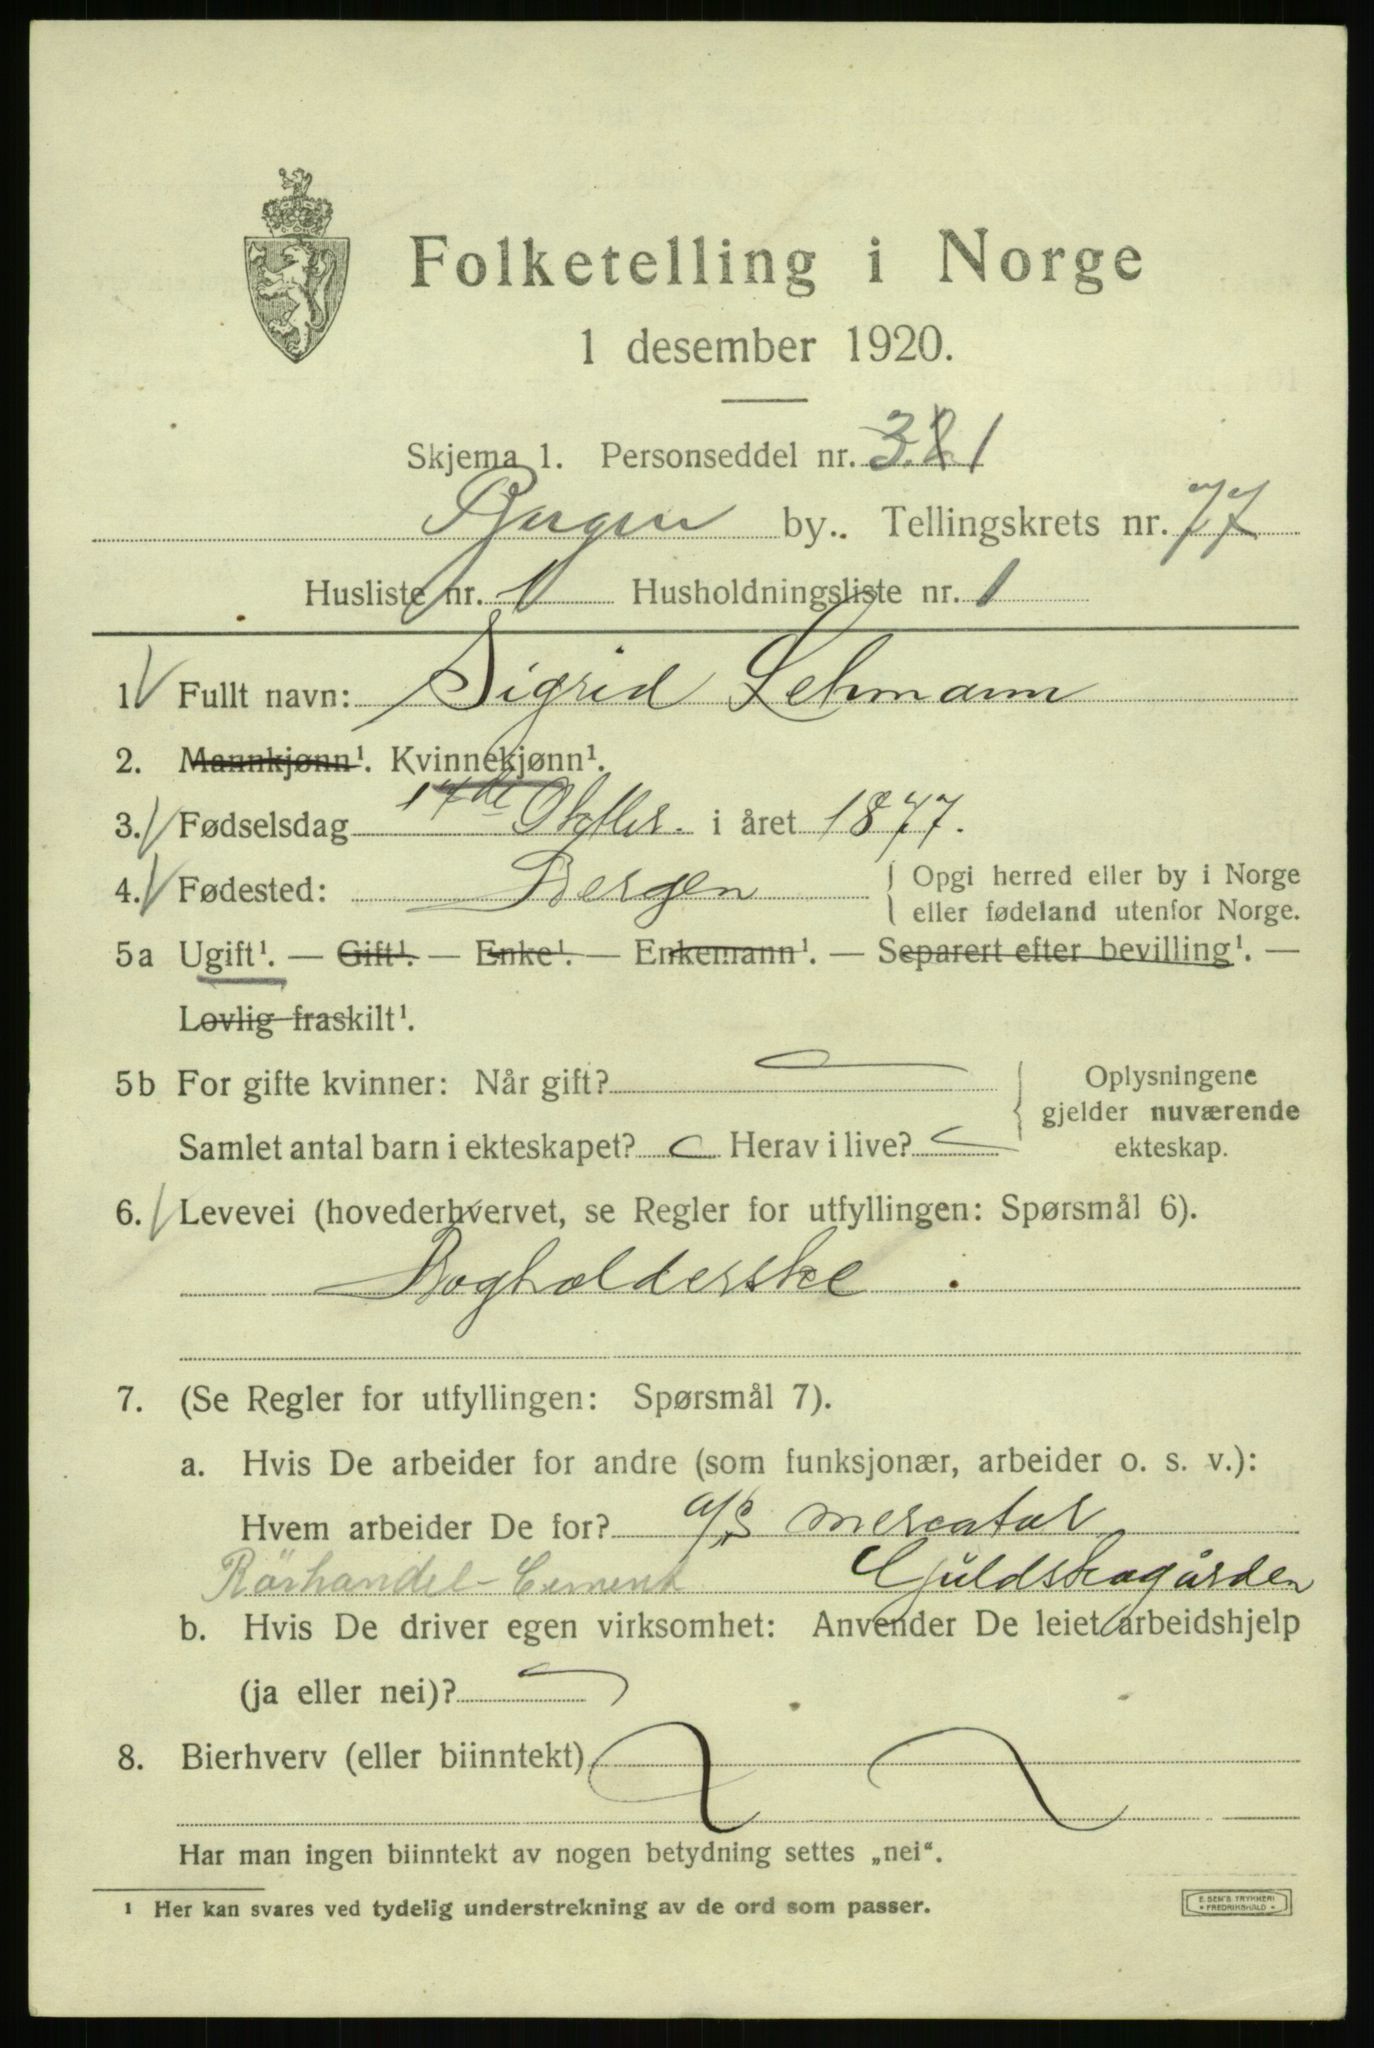 Folketelling i Norge
1 desember 1920.
Skjema 1. Personseddel nr. 381
Bergen by. Tellingskrets nr. 77
Husliste nr. 1 Husholdningsliste nr. 1
1. Fullt navn: Sigrid Lehmann
2. Mannkjønn¹. Kvinnekjønn¹.
3. Fødselsdag 14de Oktbr. i året 1877.
4. Fødested: Bergen { Opgi herred eller by i Norge
eller fødeland utenfor Norge.
5a Ugift¹. — Gift¹. — Enke¹. — Enkemann¹. — Separert efter bevilling¹. —
Lovlig fraskilt¹.
5b For gifte kvinner: Når gift? Oplysningene
gjelder nuværende
Samlet antal barn i ekteskapet? Herav i live? ekteskap.
6. Levevei (hovederhvervet, se Regler for utfyllingen: Spørsmål 6).
Bogholderske.
7. (Se Regler for utfyllingen: Spørsmål 7).
a. Hvis De arbeider for andre (som funksjonær, arbeider o. s. v.):
Hvem arbeider De for? a/s mercator
Rørhandel - Cement Guldskogården
b. Hvis De driver egen virksomhet: Anvender De leiet arbeidshjelp
(ja eller nei)?
8. Bierhverv (eller biinntekt)
Har man ingen biinntekt av nogen betydning settes „nei“.
¹ Her kan svares ved tydelig understrekning av de ord som passer.
E. SEM'S TRYKKERI
FREDRIKSHALD